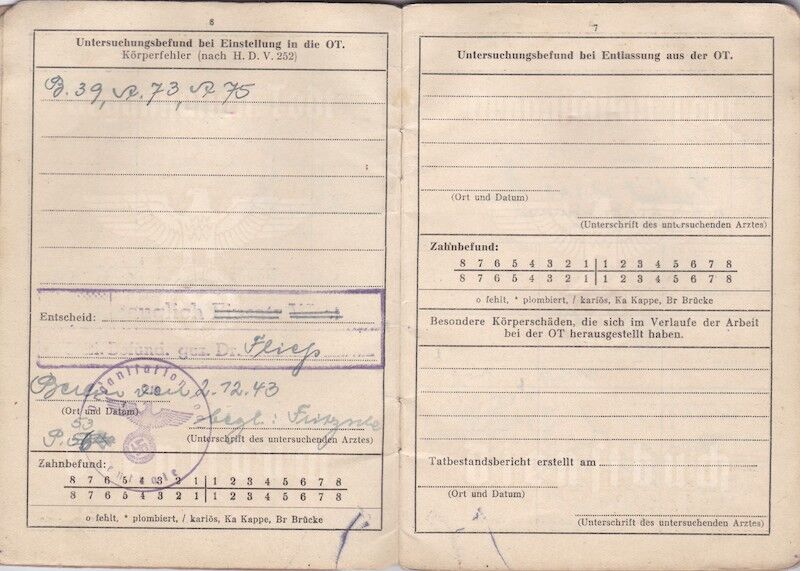 6
Untersuchungsbefund bei Einstellung in die OT.
Körperfehler (nach H. D. V. 252)
B. 39, A. 73, A 75
Entscheid:
tauglich
Befund. gez. Dr. Fließ
Berlin, den 2.12.43
(Ort und Datum)
begl.:
53
P.
(Unterschrift des untersuchenden Arztes)
Zahnbefund:
8 7 6 5 4 3 2 1 1 2 3 4 5 6 7 8
8 7 6 5 4 3 2 1 1 2 3 4 5 6 7 8
o fehlt, * plombiert, / kariös, Ka Kappe, Br Brücke
7
Untersuchungsbefund bei Entlassung aus der OT.
(Ort und Datum)
(Unterschrift des untersuchenden Arztes)
Zahnbefund:
8 7 6 5 4 3 2 1 1 2 3 4 5 6 7 8
8 7 6 5 4 3 2 1 1 2 3 4 5 6 7 8
o fehlt, * plombiert, / kariös, Ka Kappe, Br Brücke
Besondere Körperschäden, die sich im Verlaufe der Arbeit
bei der OT herausgestellt haben.
Tatbestandsbericht erstellt am
(Ort und Datum)
(Unterschrift des untersuchenden Arztes)